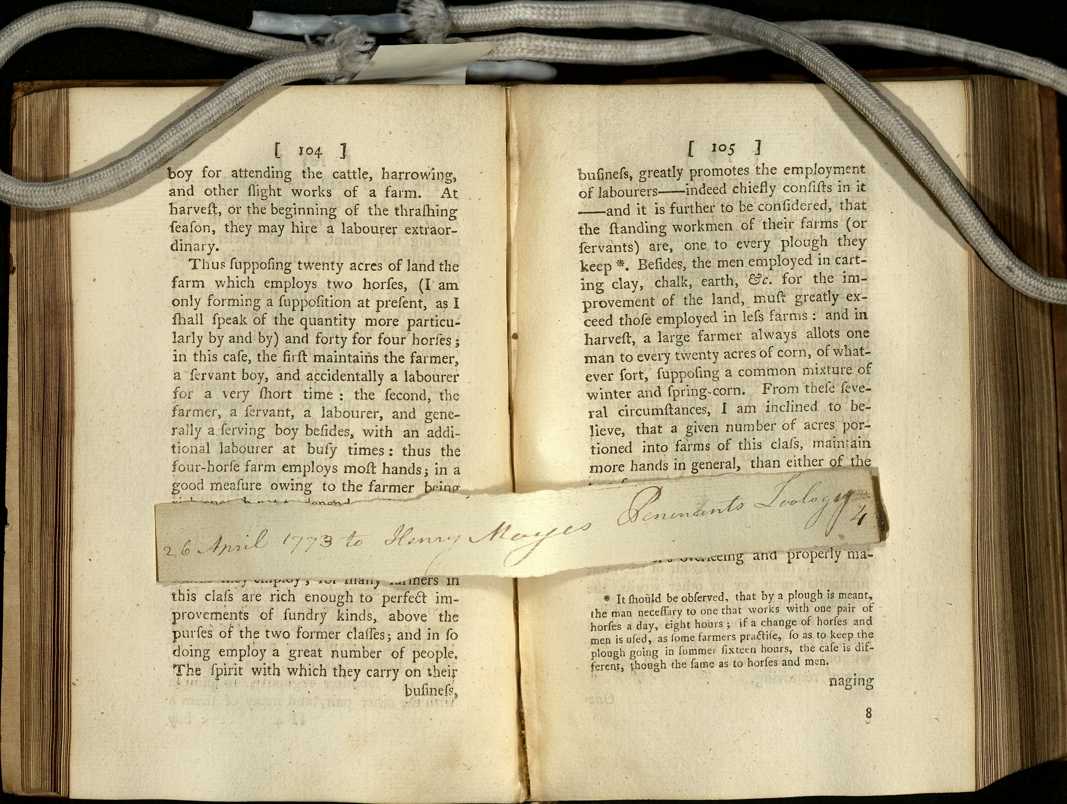 [ 104 ]
boy for attending the cattle, harrowing,
and other ſlight works of a farm. At
harveſt, or the beginning of the thraſhing
ſeaſon, they may hire a labourer extraor-
dinary.
Thus ſuppoſing twenty acres of land the
farm which employs two horſes, (I am
only forming a ſuppoſition at preſent, as I
ſhall ſpeak of the quantity more particu-
larly by and by) and forty for four horſes;
in this caſe, the firſt maintains the farmer,
a ſervant boy, and accidentally a labourer
for a very ſhort time : the ſecond, the
farmer, a ſervant, a labourer, and gene-
rally a ſerving boy beſides, with an addi-
tional labourer at buſy times : thus the
four-horſe farm employs moſt hands; in a
good meaſure owing to the farmer being
26 April 1773 to Henry Mayes Penenants Zoology 4
they employ; for many farmers in
this claſs are rich enough to perfect im-
provements of ſundry kinds, above the
purſes of the two former claſſes; and in ſo
doing employ a great number of people.
The ſpirit with which they carry on their
buſineſs,
[ 105 ]
buſineſs, greatly promotes the employment
of labourers——indeed chiefly conſiſts in it
——and it is further to be conſidered, that
the ſtanding workmen of their farms (or
ſervants) are, one to every plough they
keep *. Beſides, the men employed in cart-
ing clay, chalk, earth, &c. for the im-
provement of the land, muſt greatly ex-
ceed thoſe employed in leſs farms : and in
harveſt, a large farmer always allots one
man to every twenty acres of corn, of what-
ever ſort, ſuppoſing a common mixture of
winter and ſpring-corn. From theſe ſeve-
ral circumſtances, I am inclined to be-
lieve, that a given number of acres por-
tioned into farms of this claſs, maintain
more hands in general, than either of the
overſeeing and properly ma-
* It ſhould be obſerved, that by a plough is meant,
the man neceſſary to one that works with one pair of
horſes a day, eight hours ; if a change of horſes and
men is uſed, as ſome farmers practiſe, ſo as to keep the
plough going in ſummer ſixteen hours, the caſe is dif-
ferent, though the ſame as to horſes and men.
naging
8